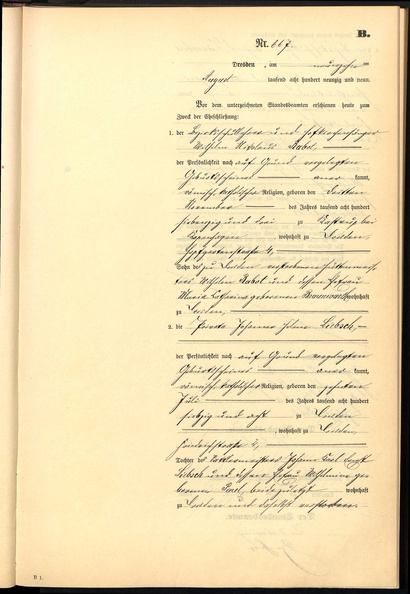 B.
Nr. 667.
Dresden, am neunzehn ten
August tausend acht hundert neunzig und neun.
Vor dem unterzeichneten Standesbeamten erschienen heute zum
Zweck der Eheschließung:
1. der und
Wilhelm Nikolaus
der Persönlichkeit nach auf Grund vorgelegten
Geburtsscheins aner kannt,
römisch-katholischer Religion, geboren den dritten
November des Jahres tausend acht hundert
siebenzig und drei zu bei
, wohnhaft zu Dresden,
4,
Sohn des zu Dresden verstorbenen
Wilhelm und dessen Ehefrau
Maria Catharina geborenen wohnhaft
zu Dresden,
2. die Johanna Helene Liebsch,
der Persönlichkeit nach auf Grund vorgelegten
Geburtsscheins aner kannt,
römisch-katholischer Religion, geboren den zehnten
Juli des Jahres tausend acht hundert
siebzig und acht zu Dresden
, wohnhaft zu Dresden,
Friedrichstraße 4,
Tochter des Johann Carl Ernst
Liebsch und dessen Ehefrau Wilhelmine ge-
borenen beide zuletzt wohnhaft
zu Dresden und daselbst verstorben.
B 1.